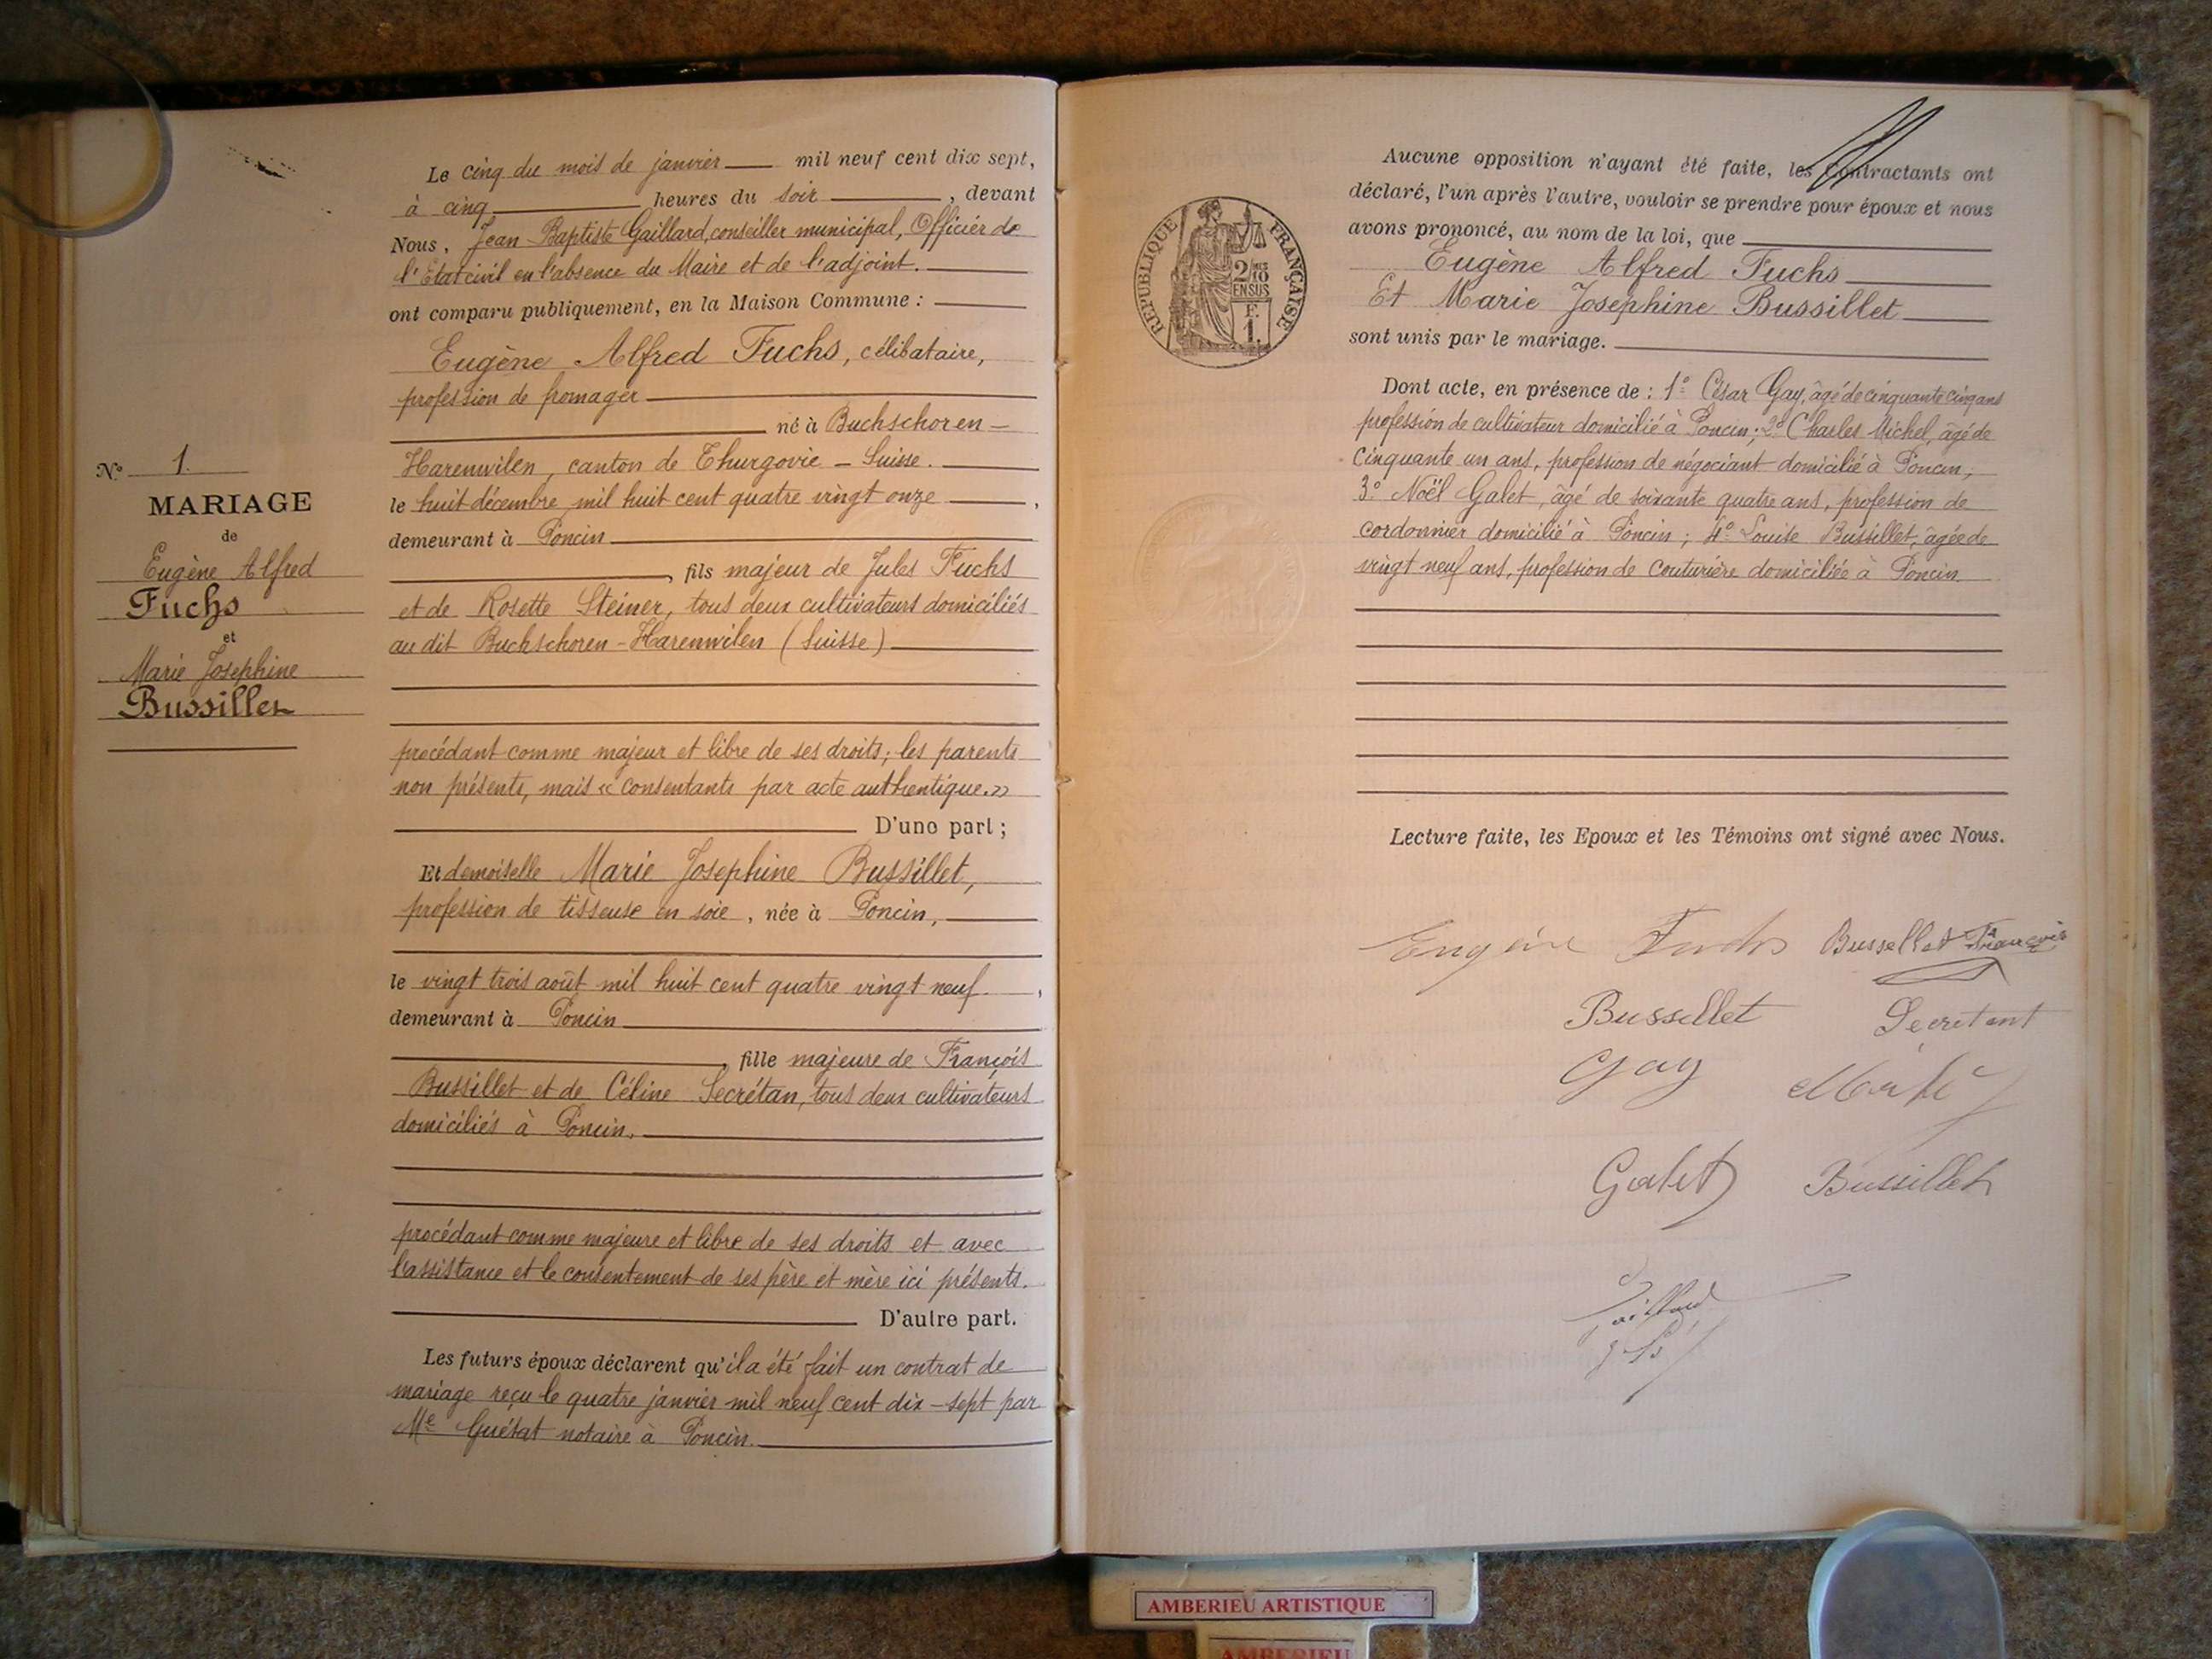 N° 1.
MARIAGE
de
Eugène Alfred
Fuchs
et
Marie Josephine
Bussillet
Le cinq du mois de janvier mil neuf cent dix sept,
à cinq heures du soir, devant
Nous, Jean Baptiste Gaillard, conseiller municipal, Officier de
l'Etat civil en l'absence du Maire et de l'adjoint.
ont comparu publiquement, en la Maison Commune :
Eugène Alfred Fuchs, célibataire,
profession de fromager
né à Buchschoren-
Harenwilen, canton de Thurgovie - Suisse.
le huit décembre mil huit cent quatre vingt onze,
demeurant à Poncin
, fils majeur de Jules Fuchs
et de Rosette Steiner, tous deux cultivateurs domiciliés
au dit Buchschoren-Harenwilen (Suisse)
procédant comme majeur et libre de ses droits; les parents
non présents, mais « consentants par acte authentique. »
D'une part ;
Et demoiselle Marie Josephine Bussillet,
profession de tisseuse en soie, née à Poncin,
le vingt trois août mil huit cent quatre vingt neuf,
demeurant à Poncin
, fille majeure de François
Bussillet et de Céline Secrétan, tous deux cultivateurs
domiciliés à Poncin.
procédant comme majeure et libre de ses droits et avec
l'assistance et le consentement de ses père et mère ici présents.
D'autre part.
Les futurs époux déclarent qu'il a été fait un contrat de
mariage reçu le quatre janvier mil neuf cent dix-sept par
Me Guétat notaire à Poncin.
RÉPUBLIQUE FRANÇAISE
2/10
EN SUS
F.
1.
Aucune opposition n'ayant été faite, les Contractants ont
déclaré, l'un après l'autre, vouloir se prendre pour époux et nous
avons prononcé, au nom de la loi, que
Eugène Alfred Fuchs
Et Marie Josephine Bussillet
sont unis par le mariage.
Dont acte, en présence de : 1° César Gay, âgé de cinquante cinq ans
profession de cultivateur domicilié à Poncin; 2° Charles Michel, âgé de
cinquante un ans, profession de négociant domicilié à Poncin;
3° Noël Galet, âgé de soixante quatre ans, profession de
cordonnier domicilié à Poncin; 4° Louise Bussillet, âgée de
vingt neuf ans, profession de couturière domiciliée à Poncin
Lecture faite, les Epoux et les Témoins ont signé avec Nous.
Eugène Fuchs Bussellet François
Bussillet Secretant
Gay
Galet Bussillet
Gaillard
AMBERIEU ARTISTIQUE
AMBERIEU